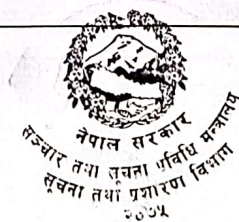 नेपाल सरकार
सञ्चार तथा सूचना प्रविधि मन्त्रालय
सूचना तथा प्रशारण विभाग
२०७५